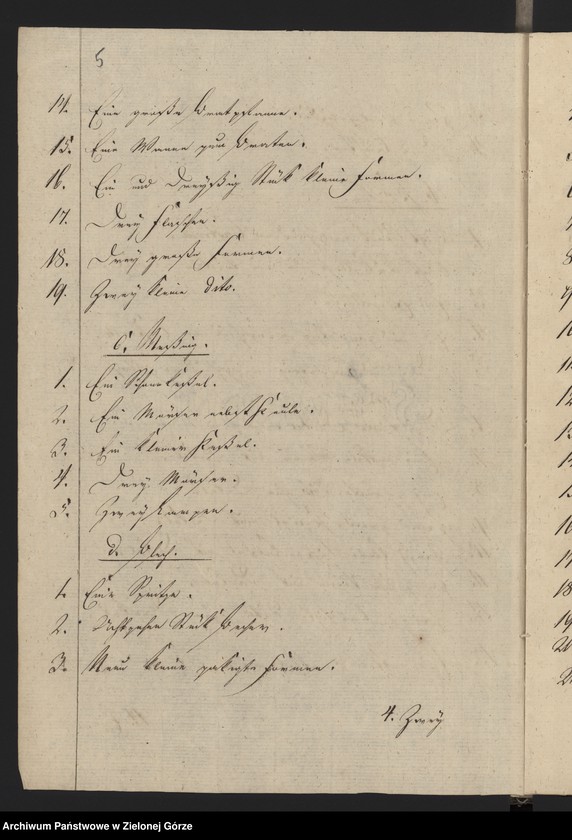 5
14. Eine große Bratpfanne.
15. Eine Wanne zum Braten.
16. Ein und Dreyßig Stük kleine Formen.
17. Drey Flaschen.
18. Drey große Formen.
19. Zwey kleine dito.
c, Meßing.
1. Ein Schnellkeßel.
2. Ein Mörser nebst Keule.
3. Ein kleiner Keßel.
4. Drey Mörser.
5. Zwey Lampen.
d. Blech.
1. Eine Spritze.
2. Achtzehen Stük Becher.
3. Neun kleine zakigte Formen.
4. Zwey
Archiwum Państwowe w Zielonej Górze